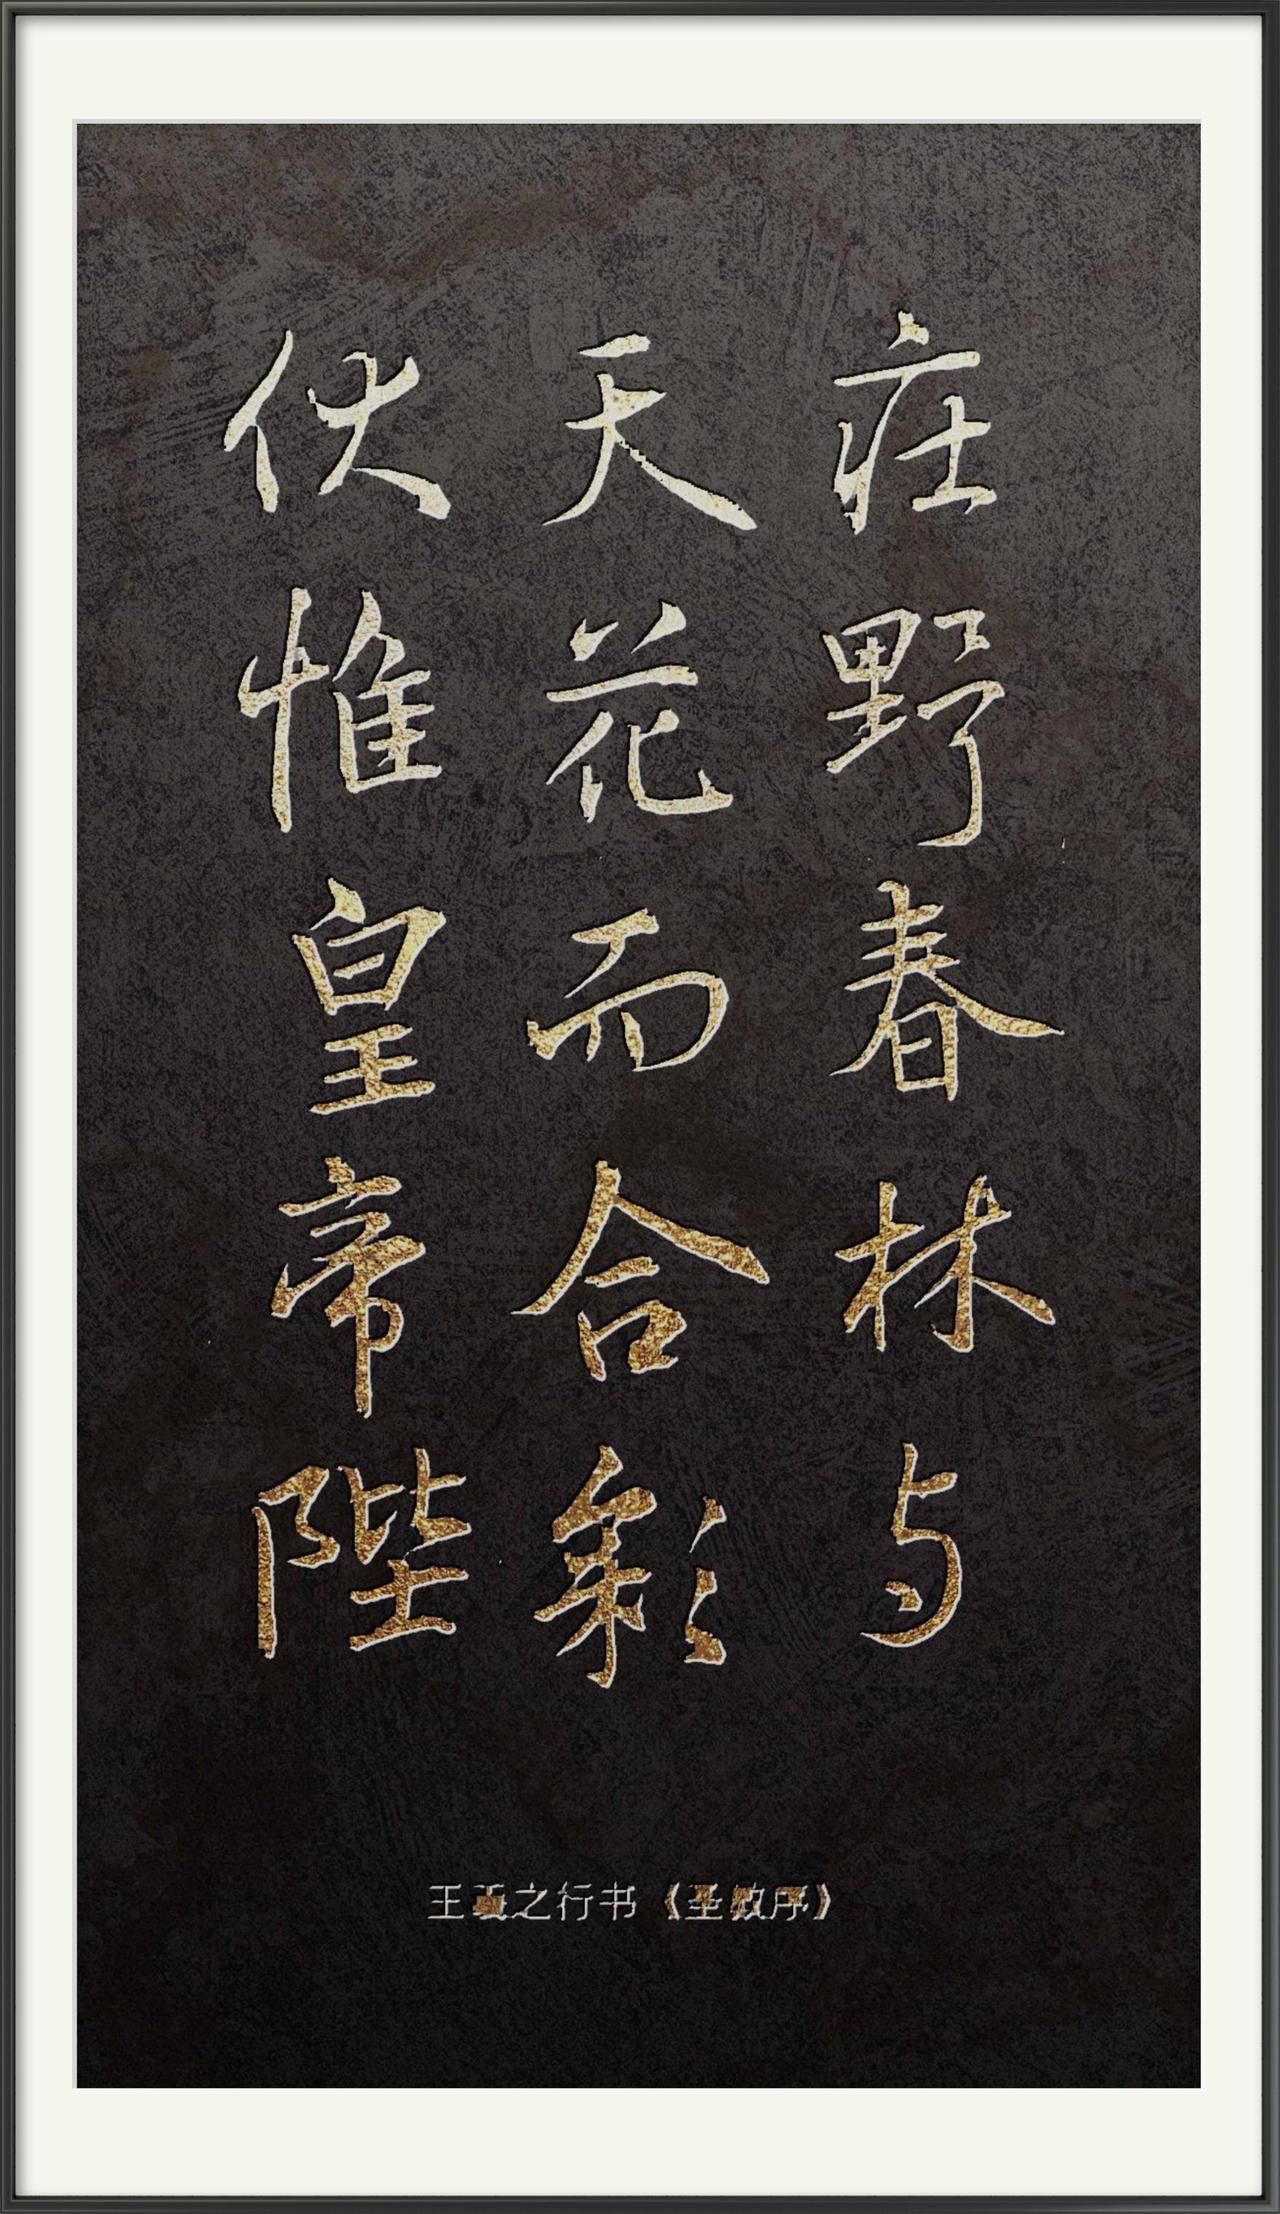 庄野春林与
天花而合彩
伏惟皇帝陛
王羲之行书《圣教序》